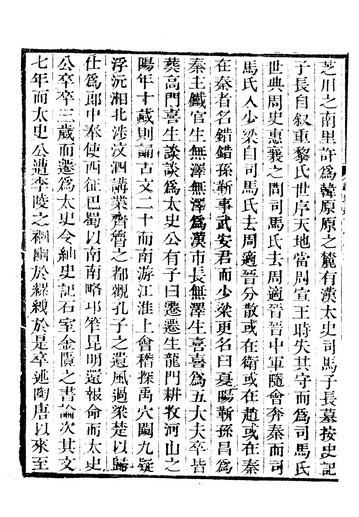 芝川之南里許為韓原原之麓有漢太史司馬子長墓按史記
子長自叙重黎氏世序天地當周宣王時失其守而為司馬氏
世典周史惠襄之間司馬氏去周適晉晉中軍隨會奔秦而司
馬氏入少梁自司馬氏去周適晉分散或在衛或在趙或在秦
在秦者名錯錯孫靳事武安君而少梁更名曰夏陽靳孫昌為
秦主鐵官生無澤無澤為漢市長無澤生喜喜為五大夫卒皆
葬高門喜生談談為太史公有子曰遷遷生龍門耕牧河山之
陽年十歲則誦古文二十而南游江淮上會稽探禹穴闚九疑
浮沅湘北涉汶泗講業齊魯之都觀孔子之遺風過梁楚以歸
仕為郎中奉使西征巴蜀以南南略邛笮昆明還報命而太史
公卒卒三歲而遷為太史令紬史記石室金匱之書論次其文
七年而太史公遭李陵之禍幽於縲紲於是卒述陶唐以來至